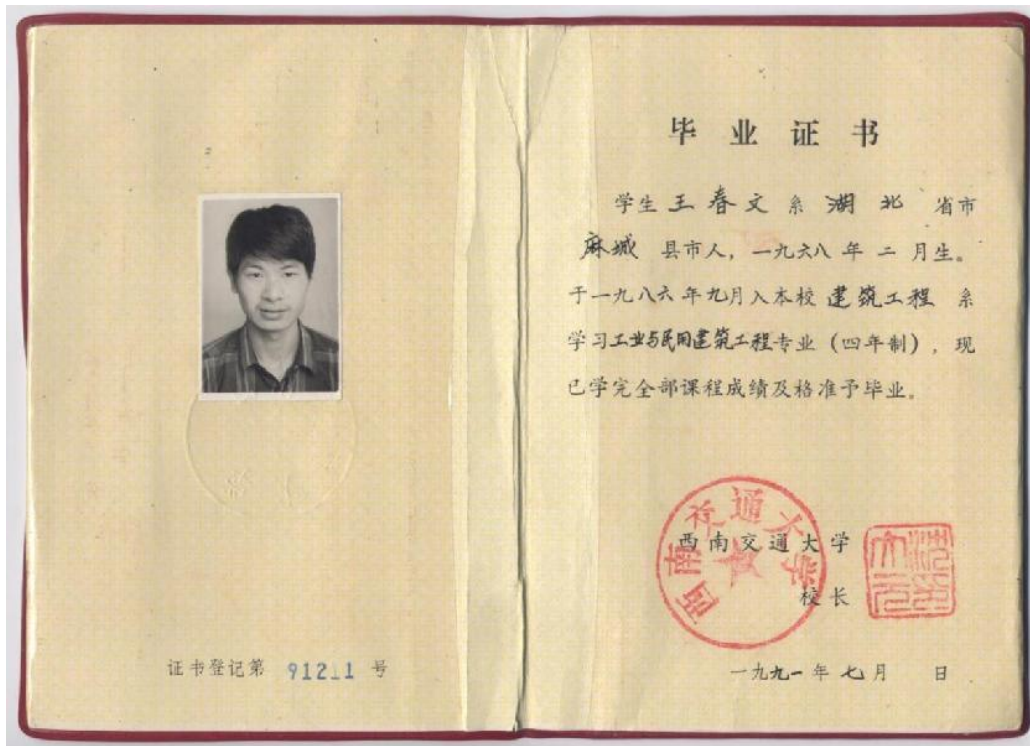 证书登记第 912_1 号
毕业证书
学生王春文系湖北省市
麻城县市人，一九六八年二月生。
于一九八六年九月入本校建筑工程系
学习工业与民用建筑工程专业（四年制），现
已学完全部课程成绩及格准予毕业。
西南交通大学
西南交通大学
校长
一九九一年七月 日